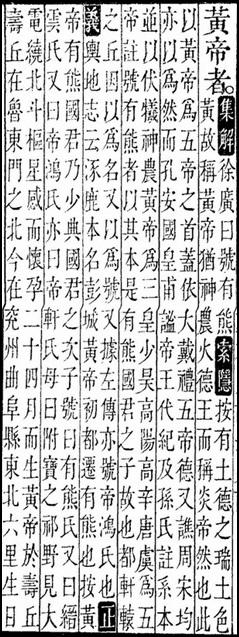 黃帝者。集解徐廣曰號有熊索隱按有土德之瑞土色
黃故稱黃帝猶神農火德王而稱炎帝然也此
以黃帝為五帝之首蓋依大戴禮五帝德又譙周宋均
亦以為然而孔安國皇甫謐帝王代紀及孫氏註系本
並以伏犧神農黃帝為三皇少昊高陽高辛唐虞為五
帝註號有熊者以其本是有熊國君之子故也都軒轅
之丘因以為名又以為號又據左傳亦號帝鴻氏也正
義輿地志云涿鹿本名彭城黃帝初都遷有熊也按黃
帝有熊國君乃少典國君之次子號曰有熊氏又曰縉
雲氏又曰帝鴻氏亦曰帝軒氏母曰附寶之祁野見大
電繞北斗樞星感而懷孕二十四月而生黃帝於壽丘
壽丘在魯東門之北今在兗州曲阜縣東北六里生日